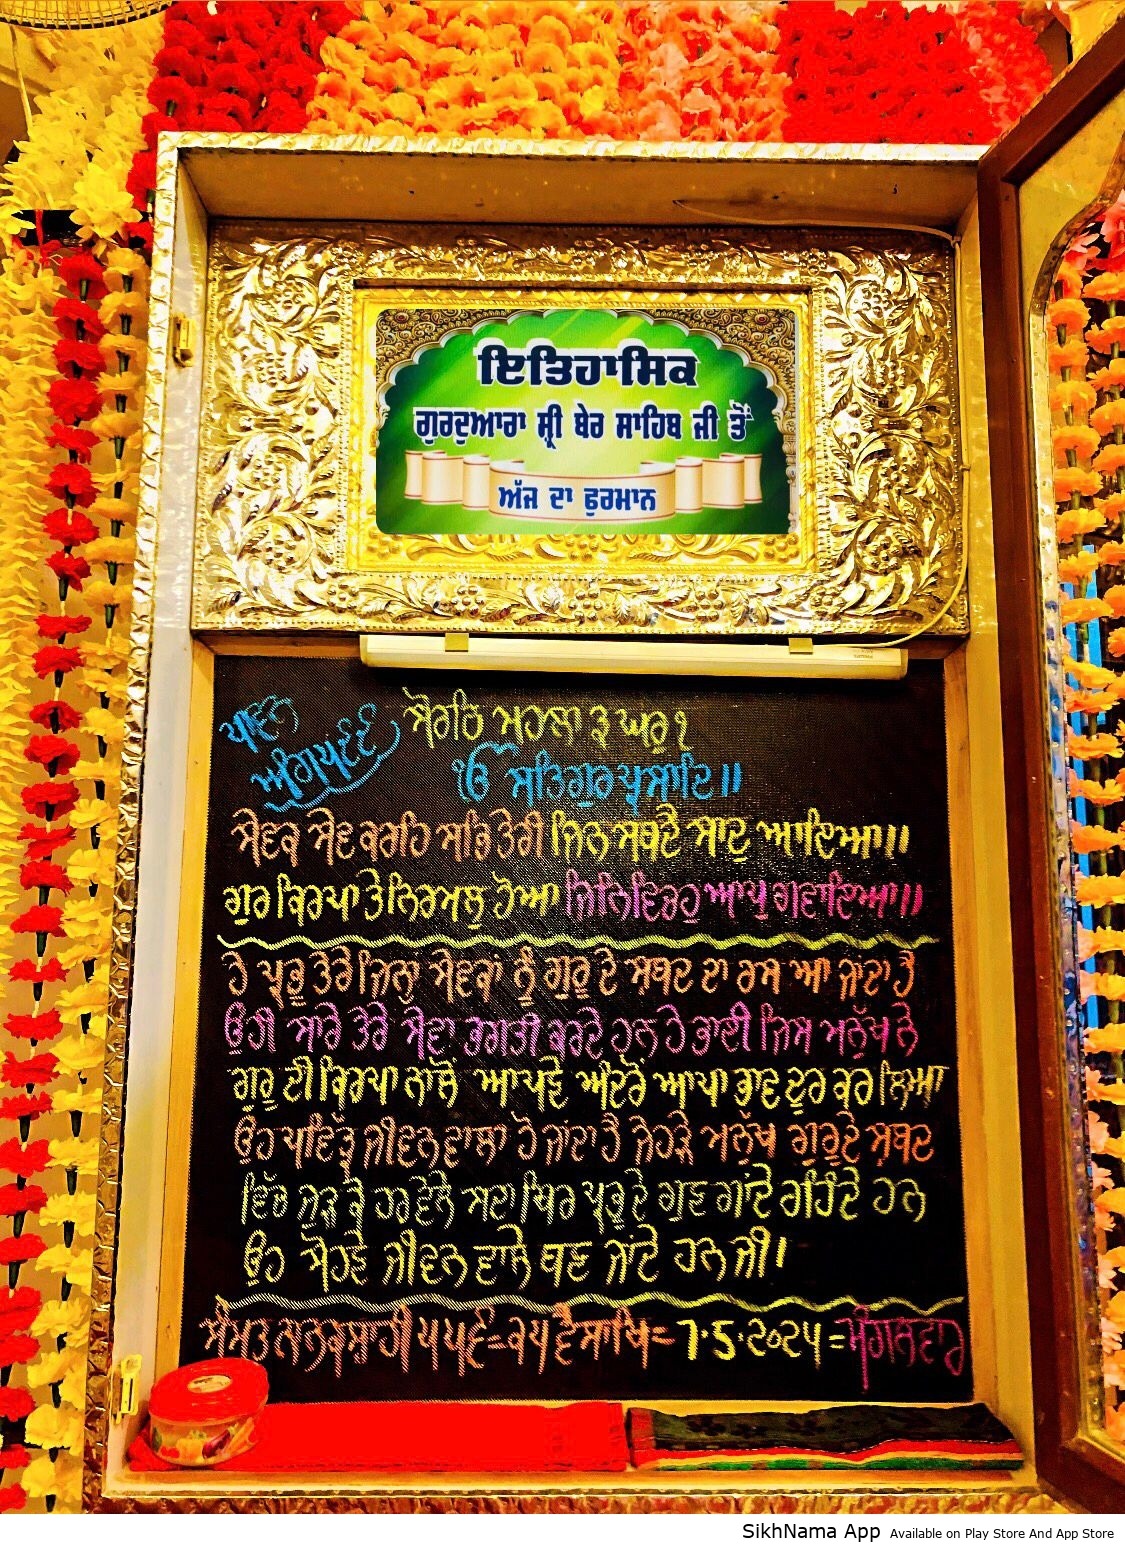 ਇਤਿਹਾਸਿਕ
ਗੁਰਦੁਆਰਾ ਸ੍ਰੀ ਬੇਰ ਸਾਹਿਬ ਜੀ ਤੋਂ
ਅੱਜ ਦਾ ਫੁਰਮਾਨ
ਪਾਵਨ
ਅੰਗ
ਸੋਰਠਿ ਮਹਲਾ ੩ ਘਰੁ ੧
ੴ ਸਤਿਗੁਰ ਪ੍ਰਸਾਦਿ॥
ਸੇਵਕ ਸੇਵ ਕਰਹਿ ਸਭਿ ਤੇਰੀ ਜਿਨ ਸਬਦੈ ਸਾਦੁ ਆਇਆ॥
ਗੁਰ ਕਿਰਪਾ ਤੇ ਨਿਰਮਲੁ ਹੋਆ ਜਿਨਿ ਵਿਚਹੁ ਆਪੁ ਗਵਾਇਆ॥
ਹੇ ਪ੍ਰਭੂ ਤੇਰੇ ਜਿਨ੍ਹਾਂ ਸੇਵਕਾਂ ਨੂੰ ਗੁਰੂ ਦੇ ਸਬਦ ਦਾ ਰਸ ਆ ਜਾਂਦਾ ਹੈ
ਉਹੀ ਸਾਰੇ ਤੇਰੇ ਸੇਵਾ ਭਗਤੀ ਕਰਦੇ ਹਨ ਹੇ ਭਾਈ ਜਿਸ ਮਨੁੱਖ ਨੇ
ਗੁਰੂ ਦੀ ਕਿਰਪਾ ਨਾਲੋਂ ਆਪਣੇ ਅੰਦਰੋਂ ਆਪਾ ਭਾਵ ਦੂਰ ਕਰ ਲਿਆ
ਉਹ ਪਵਿੱਤ੍ਰ ਜੀਵਨ ਵਾਲਾ ਹੋ ਜਾਂਦਾ ਹੈ ਜੇਹੜੇ ਮਨੁੱਖ ਗੁਰੂ ਦੇ ਸ਼ਬਦ
ਵਿੱਚ ਜੁੜ ਕੇ ਹਰ ਵੇਲੇ ਸਦਾ ਥਿਰ ਪ੍ਰਭੂ ਦੇ ਗੁਣ ਗਾਂਦੇ ਰਹਿੰਦੇ ਹਨ
ਉਹ ਸੋਹਣੇ ਜੀਵਨ ਵਾਲੇ ਬਣ ਜਾਂਦੇ ਹਨ ਜੀ।
ਸੰਮਤ ਨਾਨਕਸ਼ਾਹੀ ੫੫੬=੨੫ ਵੈਸਾਖਿ= 7.5.੨੦੨੫ =ਮੰਗਲਵਾਰ
SikhNama App Available on Play Store And App Store